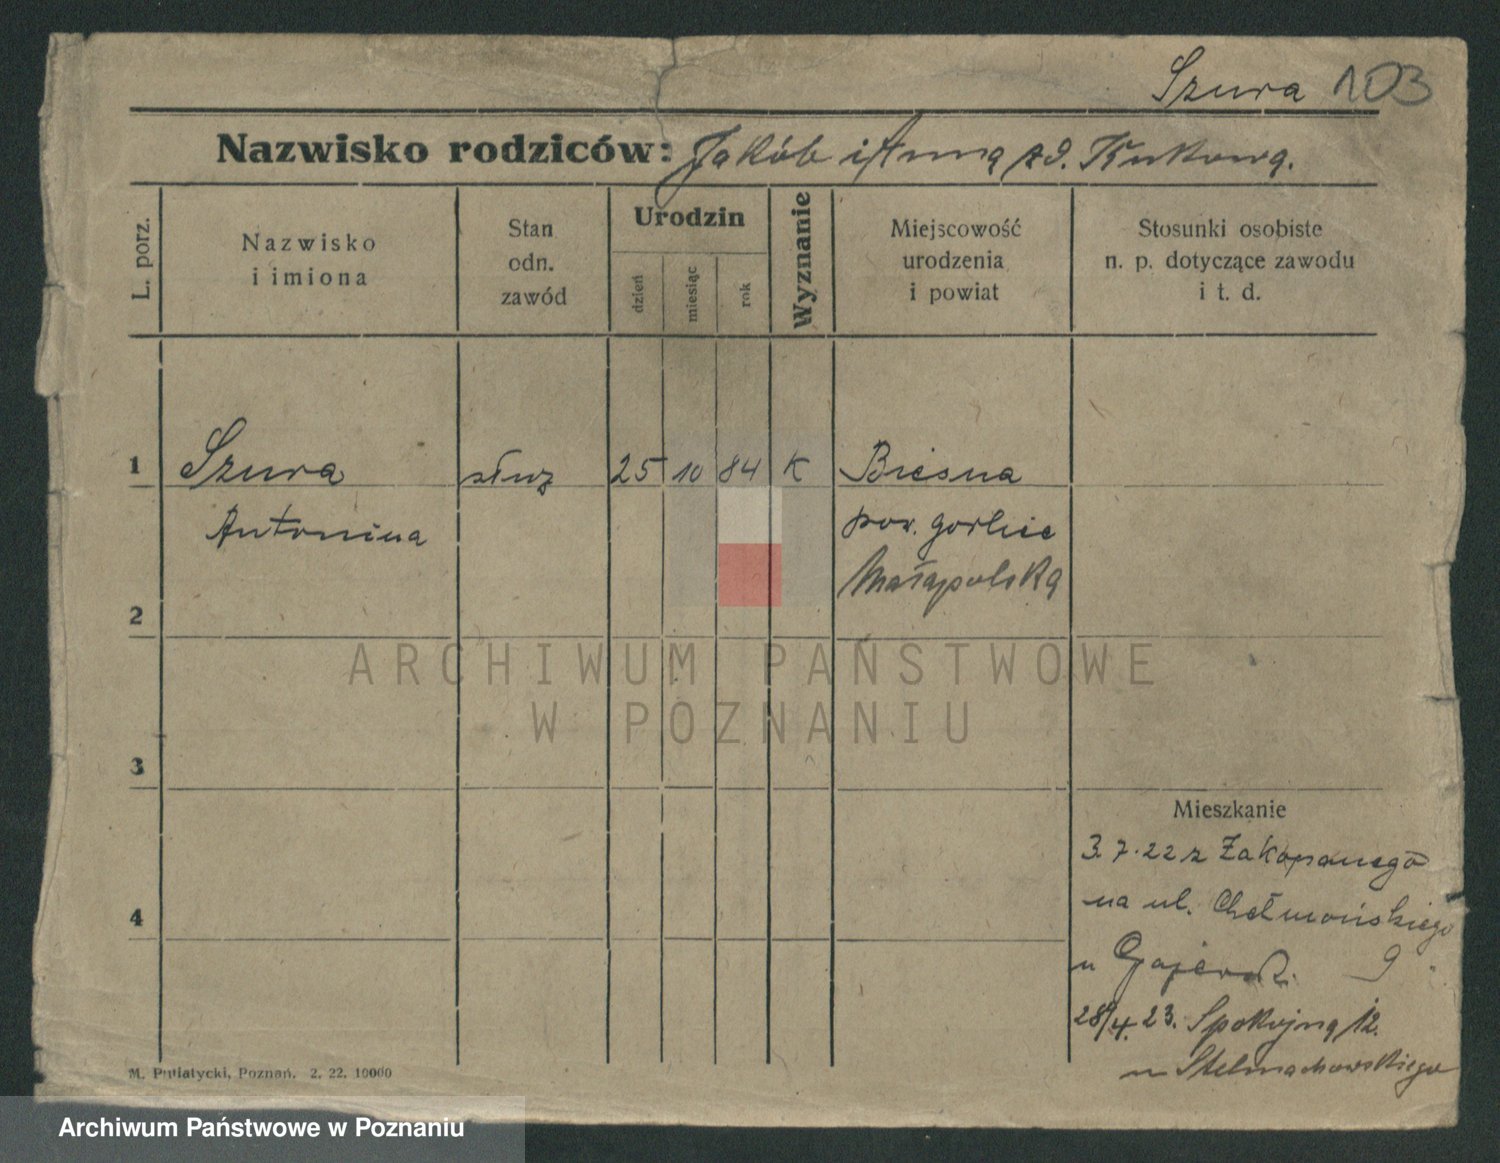 Szura 103
Nazwisko rodziców: Jakób i Anna z d. Kukowa.
L. porz.
Nazwisko
i imiona
Stan
odn.
zawód
Urodzin
dzień
miesiąc
rok
Wyznanie
Miejscowość
urodzenia
i powiat
Stosunki osobiste
n. p. dotyczące zawodu
i t. d.
1 Szura służ 25 10 84 K Biesna
Antonina pow. gorlice
Małapolska
2
ARCHIWUM PAŃSTWOWE
W POZNANIU
3
Mieszkanie
3.7.22 z Zakopanego
na ul. Chełmońskiego
4
u 9
28/4.23. Spokojna 12.
u Stelmachowskiego
M. Putiatycki, Poznań. 2. 22. 10000
Archiwum Państwowe w Poznaniu